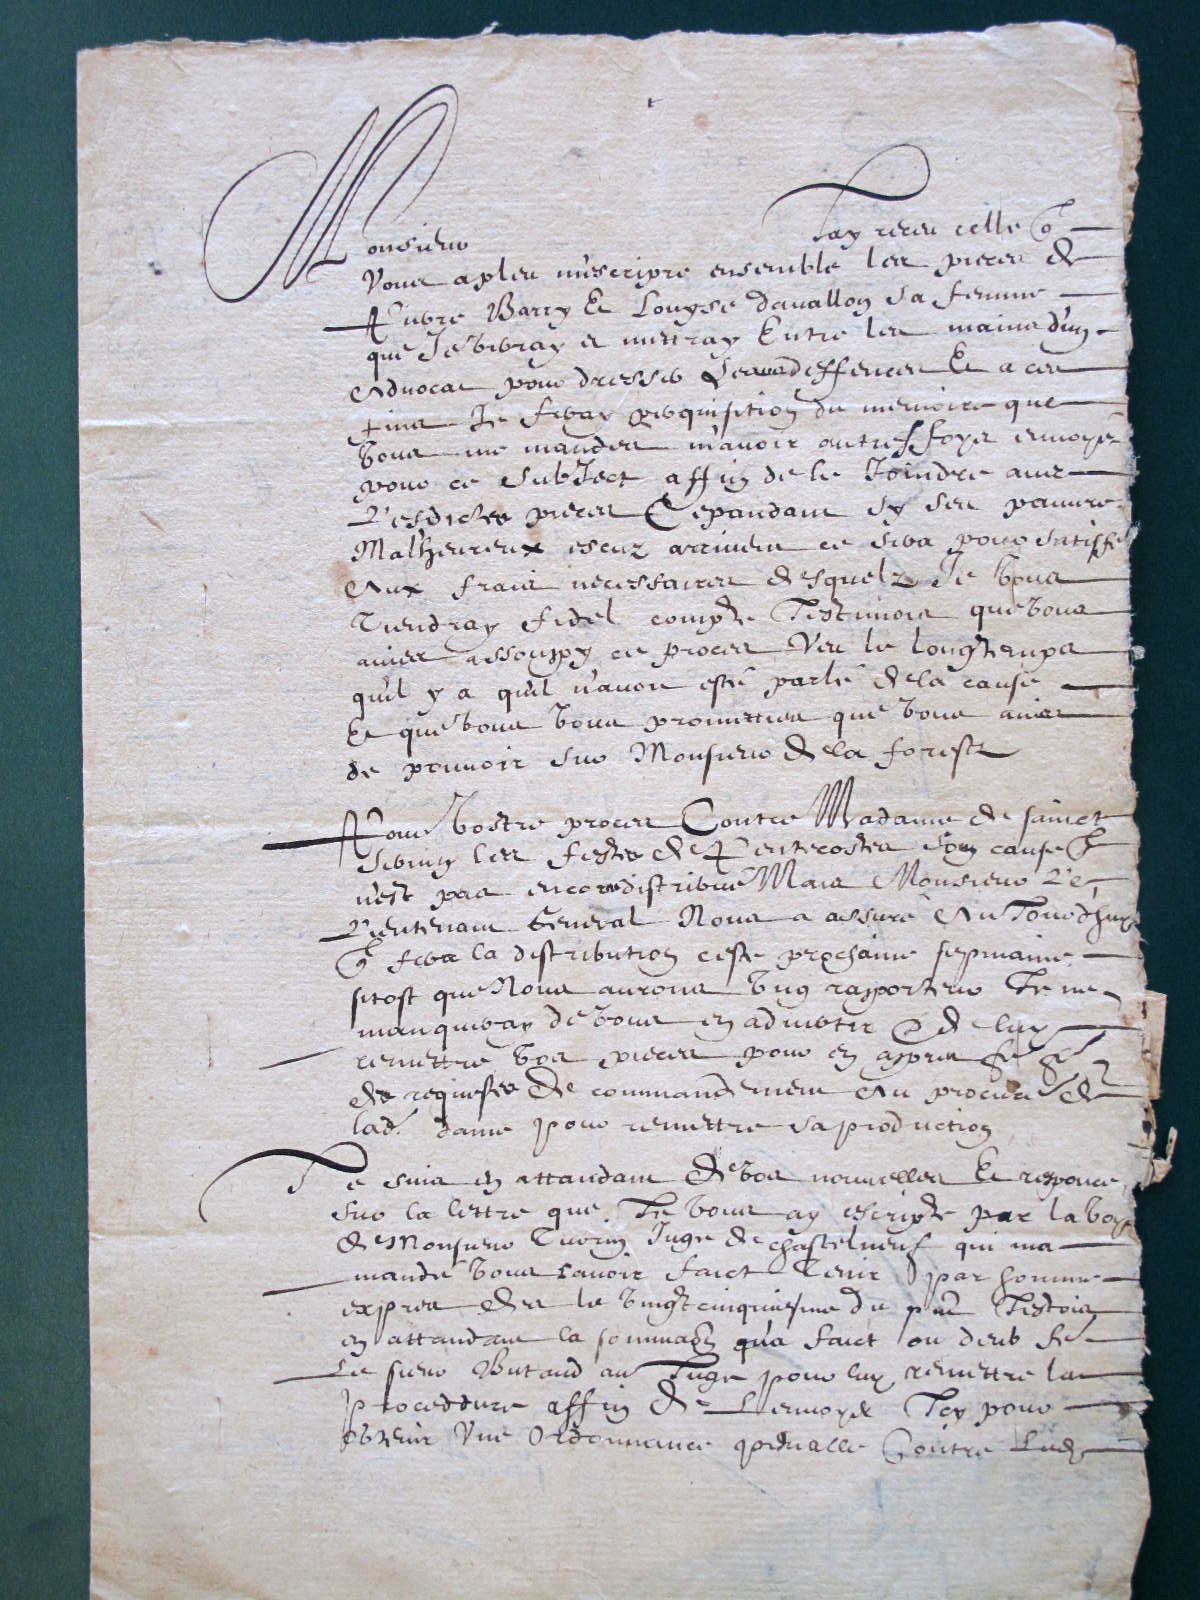 Monsieur Jay receu celle q
Vous a pleu m'escripre ensemble les pieces de
Barry et Louyse davallon sa femme
que Je verray et mettray Entre les mains d'un
Advocat pour dresser deffences Et a ces
fins Je feray perquisition du memoire que
vous me mandes m'avoir autresfoys envoyé
pour ce subJect affin de le Joindre avec
Lesdictes pieces Cependant sy ses pauvres
Malheureux escuz arrivent ce sera pour satisfe
Aux frais necessaires desquelz Je vous
Tiendray fidel compte J'estimois que vous
avies assoupy ce proces Veu le longtemps
qu'il y a qu'il n'avoit esté parlé de la cause
Et que vous vous prometties que vous avies
de pouvoir sur Monsieur de la forest
Pour vostre proces Contre Madame de sainct
les festes de Pentecostes son cause q
n'est pas encore distribué Mais Monsieur Le
Lieutenant General Nous a assuré Au Jourdhuy
q fera la distribution ceste prochaine sepmaine
sitost que Nous aurons Ung rapporteur Je ne
manqueray de vous en advertir & de luy
remettre vos pieces pour en apres
des requestes de commandement Au procureur de
lad. dame pour remettre sa production
Je suis en attandant de vos nouvelles Et responce
sur la lettre que Je vous ay escripte par la voye
de Monsieur Juge de chastelneuf qui ma
mandé vous l'avoir faict Tenir par homme
expres des le vingtcinquiesme du pnt J'estois
en attandant la sommaon qu'a faict ou deub fe
Le sieur Butaud au Juge pour luy remettre la
proceddure affin de L'envoyer Icy pour
obtenir Une Ordonnance Contre Lad